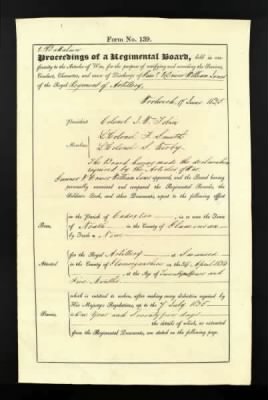 Form No. 139.
Proceedings of a Regimental Board, held in
conformity to the Articles of War, for the purpose of verifying and recording the Services,
Conduct, Character, and cause of Discharge of William
of the Royal Regiment of Artillery,
Woolwich 9 June 1835
President Colonel J. W.
Members L Colonel J. Smith
L Colonel S.
The Board having made the declaration
required by the Articles of War
William appeared, and the Board having
personally examined and compared the Regimental Records, the
Soldiers Book, and other Documents, report to the following effect
Born, in the Parish of in or near the Town
of Neath in the County of Glamorgan
by Trade a
Attested for the Royal Artillery as a
in the County of on the 24 April 1834
at the Age of Years and
Five Months.
Service, which is entitled to reckon, after making every deduction required by
His Majesty's Regulations, up to the 7 July 1835
One Year and Seventy five days
the details of which, as extracted
from the Regimental Documents, are stated on the following page.